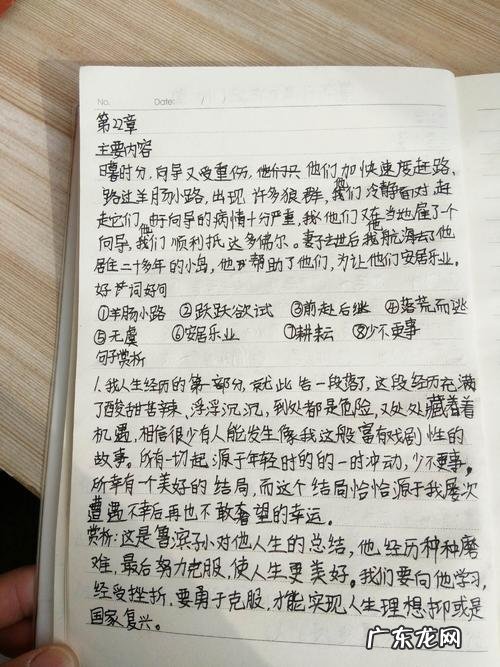 No. Date: / /
第22章
主要内容
日暮时分，向导又受重伤，他们只 他们加快速度赶路，
路过羊肠小路，出现许多狼群，他们冷静面对，赶
走它们，由于向导的病情十分严重，他们又在当地雇了一个
向导，他们顺利抵达多佛尔。妻子去世后他航海去了他
居住二十多年的小岛，他帮助了他们，为让他们安居乐业。
好词好句
①羊肠小路 ②跃跃欲试 ③前赴后继 ④落荒而逃
⑤无虞 ⑥安居乐业 ⑦耕耘 ⑧少不更事
句子赏析
1.我人生经历的第一部分，就此告一段落了，这段经历充满
了酸甜苦辣、浮浮沉沉，到处都是危险，又处处藏着着
机遇，相信很少有人能发生像我这般富有戏剧性的
故事。所有一切起源于年轻时的的一时冲动，少不更事。
所幸有一个美好的结局，而这个结局恰恰源于我屡次
遭遇不幸后再也不敢奢望的幸运。
赏析：这是鲁滨孙对他人生的总结，他经历种种磨
难，最后努力克服，使人生更美好。我们要向他学习，
经受挫折，要勇于克服，才能实现人生理想抑或是
国家复兴。
广东龙网